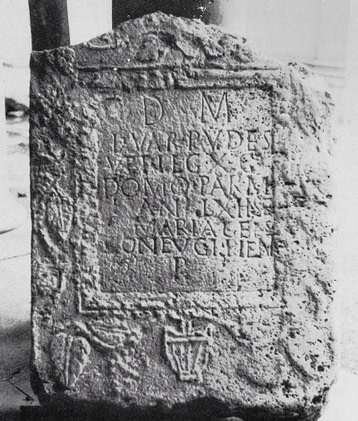 D M
L VAR RVDES
VET LEG X G
DOMO PARM
AN LXII
MARIA
CONIVGI PIEN
P